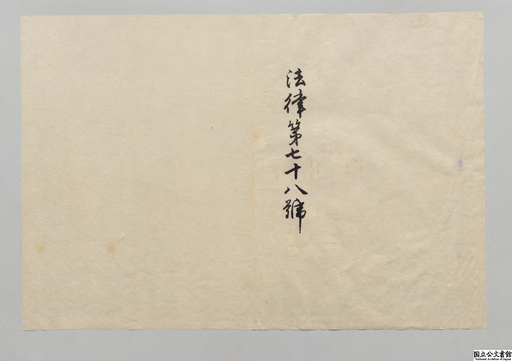 法律第七十八號
国立公文書館
National Archives of Japan